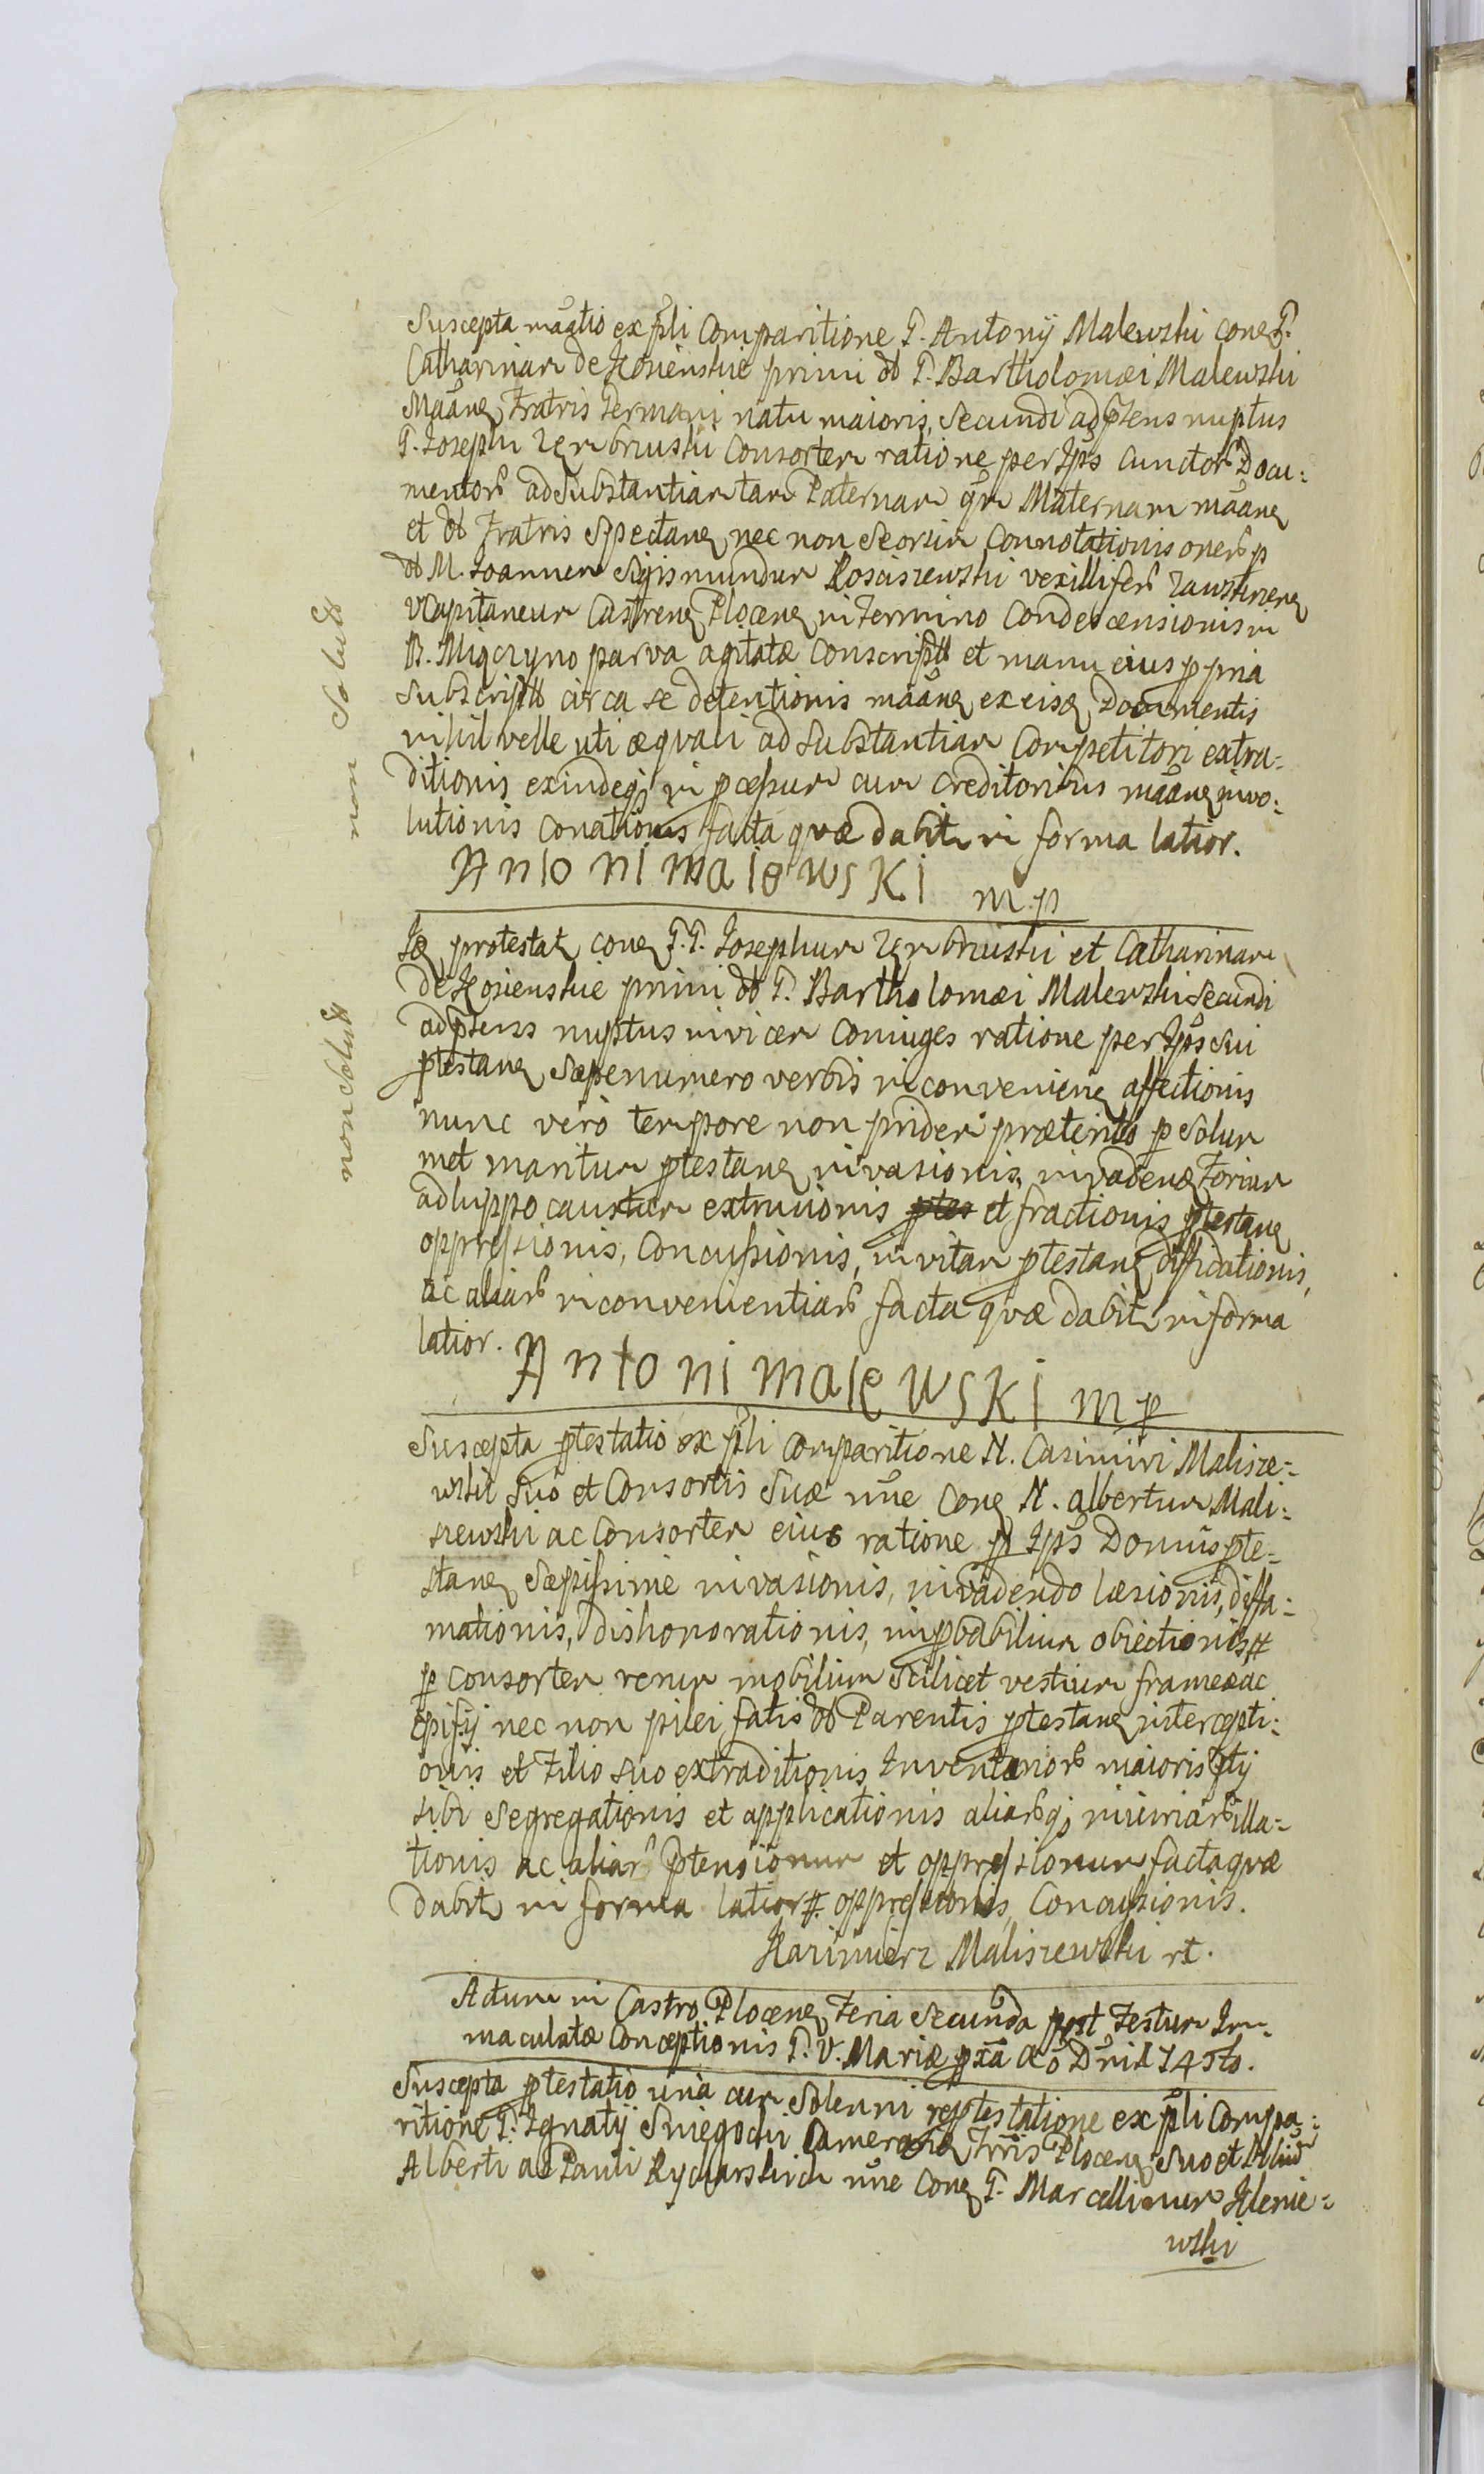 Suscepta mãatio ex p̃li Comparitione G. Antonij Malewski conq G.
Catharinam de Kosienskie primi olĩ G. Bartholomæi Malewski
Mãanq Fratris Germani natu maioris, Secundi ad p̃sens nuptus
G. Josephi Zembrzuski Consortem ratione per Ip̃s cunctor Docu-
mentor ad Substantiam tam Paternam qm Maternam mãanq
et olĩ Fratris Spectanq nec non Seorsim Connotationis oner p
olĩ M. Joannem Sigismundum Kosciszewski vexillifer Zawskrzenq
VCapitaneum Castrenq Plocenq in Termino Condescensionis in
B. Miączyno parva agitatæ Conscript et manu eius ppria
Subscript circa se detentionis mãanq ex eisq Documentis
nihil velle uti æquali ad Substantiam Competitori extra-
ditionis exindeq in pcessum cum Creditoribus mãanq invo-
lutionis conationis facta quæ dabit in forma latior.
Antoni malewski mp
Id protestat conq G.G. Josephum Zembrzuski et Catharinam
de Kosienskie primi olĩ G. Bartholomæi Malewski Secundi
ad p̃sens nuptus invicem Coniuges ratione per Ip̃s Sui
ptestanq Sæpenumero verbis inconvenienq affectionis
nunc vero tempore non pridem præterito p Solum
met maritum ptestanq invasionis, invadenq Forium
ad luppocaustum extrusionis ptes et fractionis ptestanq
oppressionis, Concussionis, in vitam ptestanq diffidationis,
ac aliar inconvenientiar facta quæ dabit in forma
latior.
Antoni malewski mp
Suscepta ptestatio ex p̃li Comparitione N. Casimiri Malisze-
wski Suo et Consortis Suæ nñe Conq N. albertum Mali-
szewski ac Consortem eius ratione p Ip̃s Domus pte-
stanq Sæpissime invasionis, invadendo læsionis, diffa-
mationis, dishonorationis, improbabilium obiectionis #
p Consortem rerum mobilium Scilicet vestium frameæ ac
Epissij nec non pilei fatis olĩ Parentis ptestanq intercepti-
onis et Filio suo extraditionis Inventarior maioris ptij
sibi Segregationis et applicationis aliarq iniuriar illa-
tionis ac aliar ptensionum et oppressionum facta quæ
dabit in forma latior # oppressionis, Concussionis.
Kazimierz Maliszewski rt.
Actum in Castro Plocenq Feria Secunda post Festum Im-
maculatæ Conceptionis B. V. Mariæ pxã Aõ Dñi 1745to.
Suscepta ptestatio una cum Solenni reptestatione ex p̃li Compa-
ritione G. Ignatij Sniegocki Camerarij Trris Plocenq Suo et
Alberti ac Pauli Rycharskich nñe Conq G. Marcellinum Klenie-
wski
non Solut
non Solut